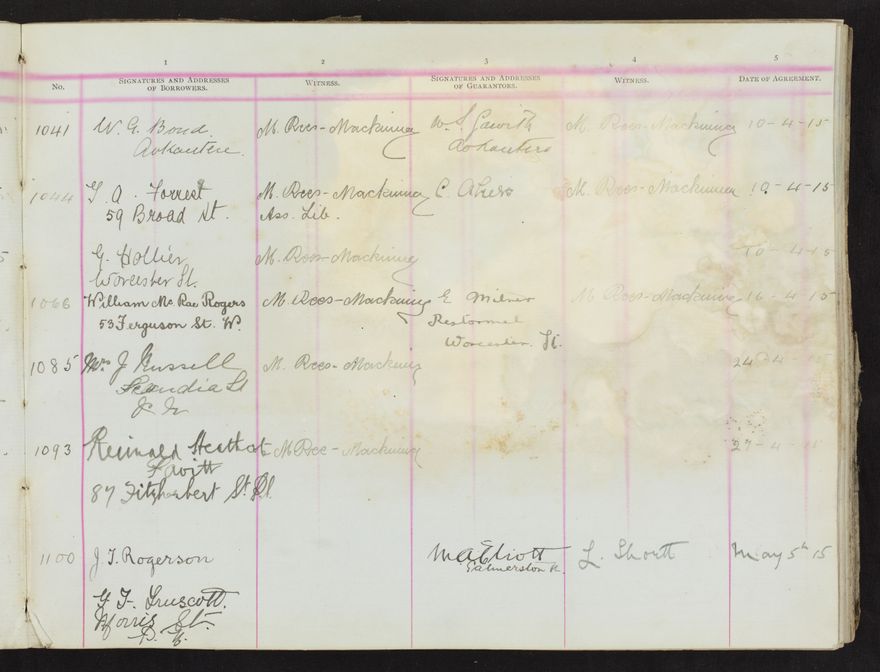 1 2 3 4 5
No. SIGNATURES AND ADDRESSES OF BORROWERS. WITNESS. SIGNATURES AND ADDRESSES OF GUARANTORS. WITNESS. DATE OF AGREEMENT.
1041 W. G. Bond. M. Rees-Mackinney W. S. M. Rees-Mackinney 10-4-15
1044 A. Forrest M. Rees-Mackinney C. Akers M. Rees-Mackinney 10-4-15
59 Broad St. Ass. Lib.
G. Hollier M. Rees-Mackinney 10-4-15
Worcester St.
1066 William Mc Rae Rogers M. Rees-Mackinney E Milner M. Rees-Mackinney 16-4-15
53 Ferguson St. W. Restormel
Worcester St.
1085 Mrs J Russell M. Rees-Mackinney 24-4-15
Scandia St
1093 Reginald Heathcot M Rees-Mackinney 27-4-15
87 Fitzherbert St
1100 J. T. Rogerson M A Elliott L. Shortt May 5th 15
Palmerston N.
Truscott.
Morris St.
P. N.